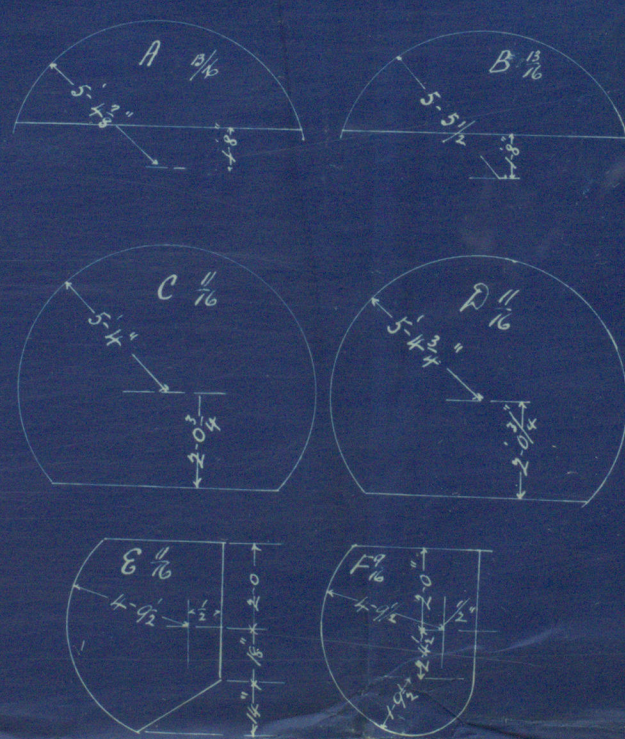 A 13/16
5'-4 7/8"
1'-8"
B 13/16
5-5 1/2
1'-8"
C 11/16
5'-4"
2-0 3/4
D 11/16
5'-4 3/4"
2'-0 3/4"
E 11/16
4-9 1/2
1/2"
2-0
18"
14"
F 9/16
4-9 1/2
2-0"
1/2"
1-9 1/2